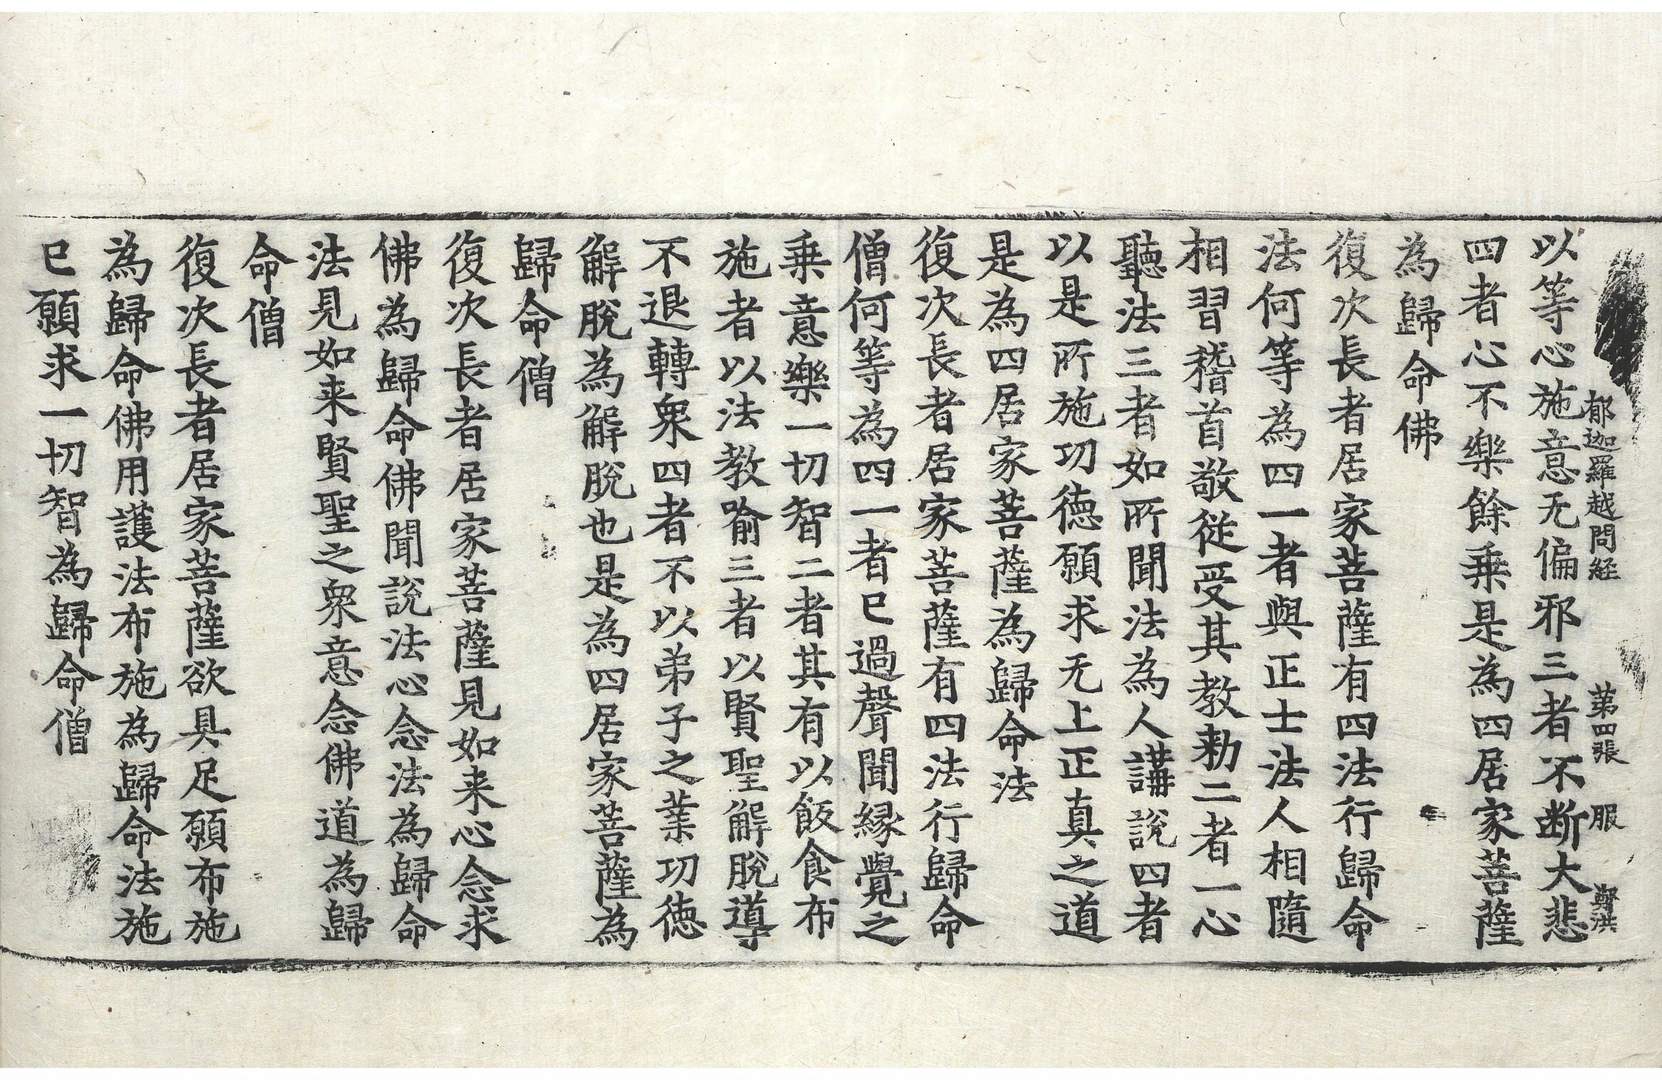 郁迦羅越問経 第四張 服 鄭洪
以等心施意无偏邪三者不断大悲
四者心不樂餘乗是為四居家菩薩
為歸命佛
復次長者居家菩薩有四法行歸命
法何等為四一者與正士法人相隨
相習稽首敬従受其教勑二者一心
聽法三者如所聞法為人講說四者
以是所施功徳願求无上正真之道
是為四居家菩薩為歸命法
復次長者居家菩薩有四法行歸命
僧何等為四一者已過聲聞縁覺之
乗意樂一切智二者其有以飯食布
施者以法教喻三者以賢聖解脫導
不退轉衆四者不以弟子之業功徳
解脫為解脫也是為四居家菩薩為
歸命僧
復次長者居家菩薩見如来心念求
佛為歸命佛聞說法心念法為歸命
法見如来賢聖之衆意念佛道為歸
命僧
復次長者居家菩薩欲具足願布施
為歸命佛用護法布施為歸命法施
已願求一切智為歸命僧